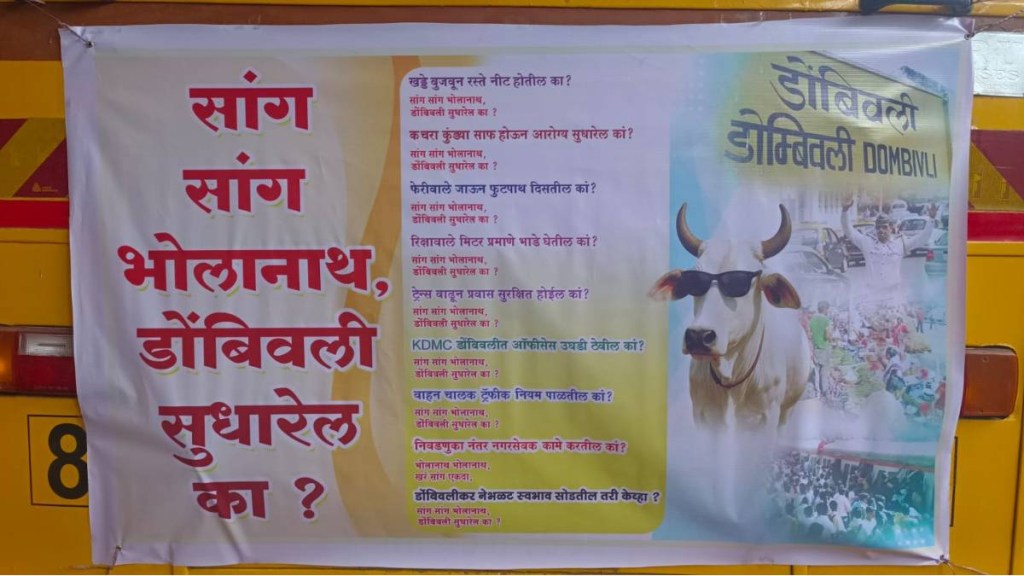 सांग
सांग
भोलानाथ,
डोंबिवली
सुधारेल
का ?
खड्डे बुजवून रस्ते नीट होतील का?
सांग सांग भोलानाथ,
डोंबिवली सुधारेल का ?
कचरा कुंड्या साफ होऊन आरोग्य सुधारेल कां?
सांग सांग भोलानाथ,
डोंबिवली सुधारेल का ?
फेरीवाले जाऊन फुटपाथ दिसतील कां?
सांग सांग भोलानाथ,
डोंबिवली सुधारेल का ?
रिक्षावाले मिटर प्रमाणे भाडे घेतील कां?
सांग सांग भोलानाथ,
डोंबिवली सुधारेल का ?
ट्रेन्स वाढून प्रवास सुरक्षित होईल कां?
सांग सांग भोलानाथ,
डोंबिवली सुधारेल का ?
KDMC डोंबिवलीत ऑफीसेस उघडी ठेवील कां?
सांग सांग भोलानाथ,
डोंबिवली सुधारेल का ?
वाहन चालक ट्रॅफीक नियम पाळतील कां?
सांग सांग भोलानाथ,
डोंबिवली सुधारेल का ?
निवडणुका नंतर नगरसेवक कामे करतील कां?
भोलानाथ भोलानाथ,
खरं सांग एकदा,
डोंबिवलीकर नेभळट स्वभाव सोडतील तरी केव्हा ?
सांग सांग भोलानाथ,
डोंबिवली सुधारेल का ?
डोंबिवली
डोम्बिवली DOMBIVLI
8